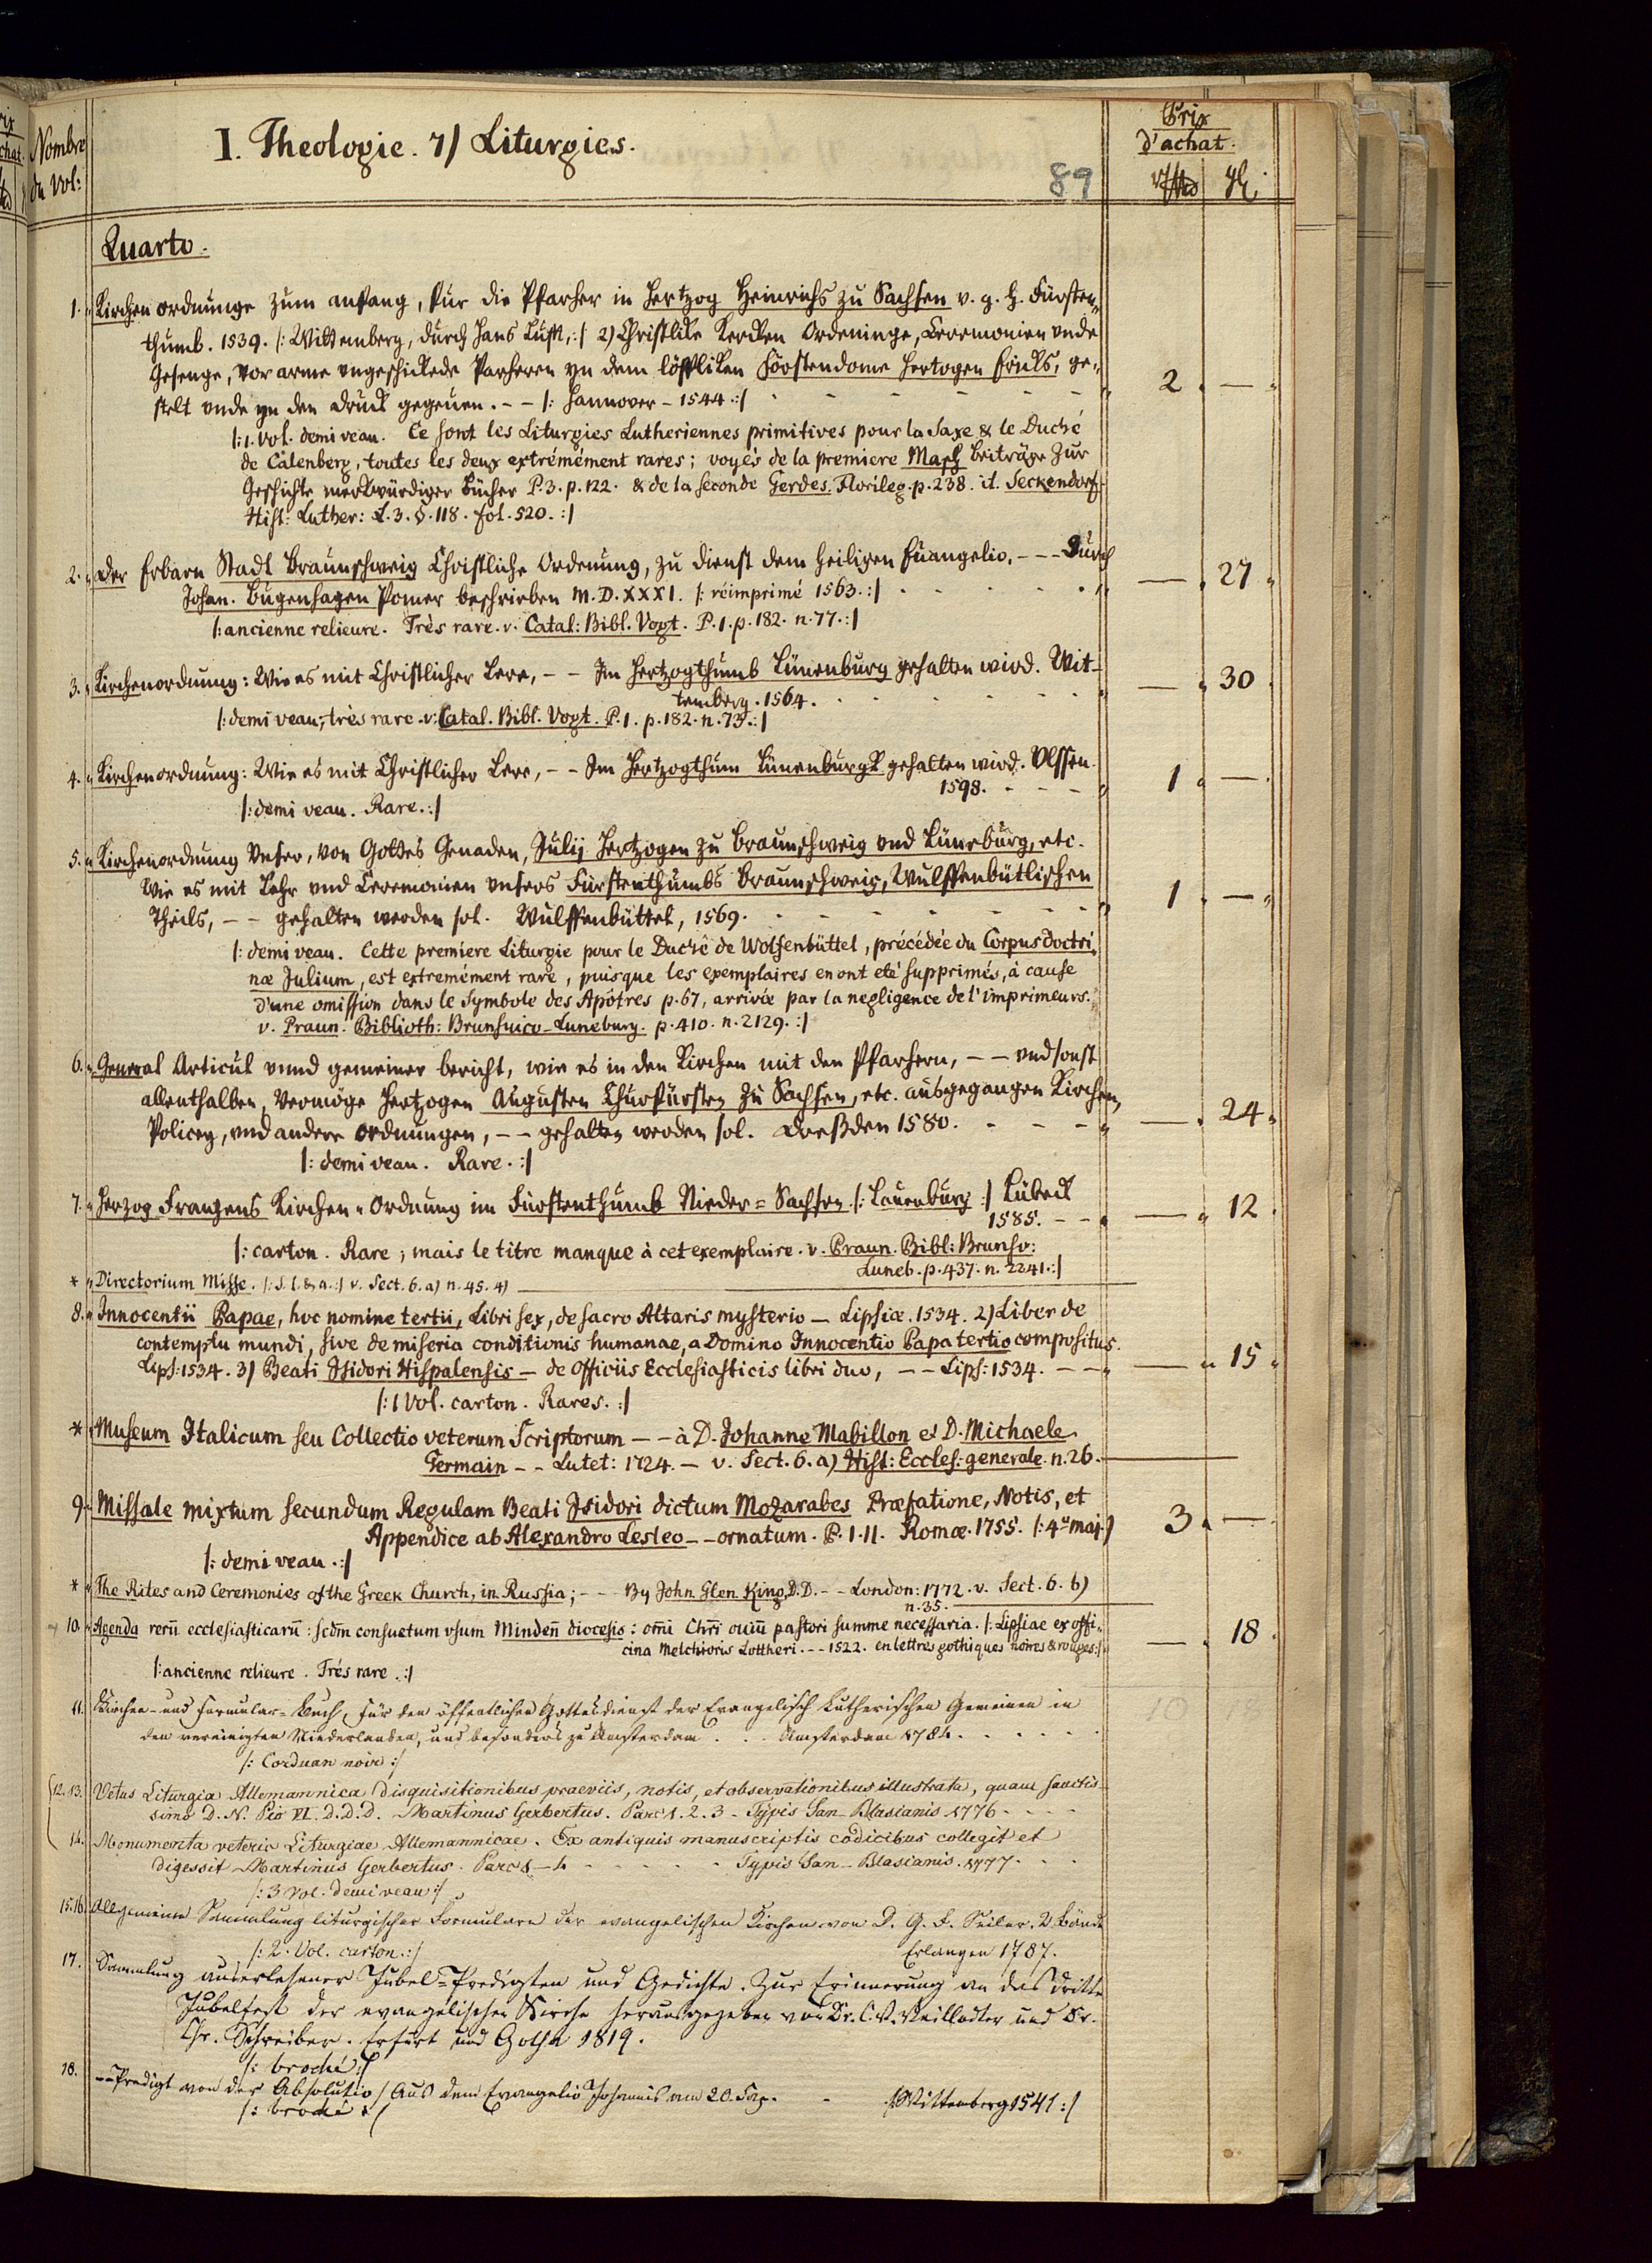 Nombre
du Vol:
I. Theologie. 7) Liturgies.
89
Prix
d'achat.
Quarto.
1. Kirchen ordnunge zum anfang, für die Pfarher in Hertzog Heinrichs zu Sachsen v. g. h. Fürsten-
thumb. 1539. /: Wittemberg, durch Hans Lufft, :/ 2) Christlike Kercken Ordeninge, Ceremonien vnde
Gesenge, vor arme vngeschickede Parheren yn dem löffliken Förstendome Hertogen Ericks, ge-
stelt vnde yn den Druck gegeuen. - - /: Hannover - 1544 :/ 2 . —
/: 1. Vol. demi veau. Ce sont les Liturgies Lutheriennes primitives pour la Saxe & le Duché
de Calenberg, toutes les deux extrémément rares; voyés de la premiere Masch Beiträge zur
Geschichte merkwürdiger Bücher P. 3. p. 122. & de la seconde Gerdes. Florileg. p. 238. it. Seckendorf
Hist: Luther: L. 3. §. 118. fol. 520. :/
2. Der Erbarn Stadt Braunschweig Christliche Ordenung, zu dienst dem heiligen Euangelio, - - - Durch
Johan. Bugenhagen Pomer beschrieben M.D.XXXI. /: réimprimé 1563. :/ — 27
/: ancienne relieure. Très rare. v. Catal: Bibl. Vogt. P. 1. p. 182. n. 77. :/
3. Kirchenordnung: Wie es mit Christlicher Lere, - - Im Hertzogthumb Lünenburg gehalten wird. Wit-
temberg. 1564. — 30
/: demi veau, très rare. v. Catal. Bibl. Vogt. P. 1. p. 182. n. 73. :/
4. Kirchenordnung: Wie es mit Christlicher Lere, - - Im Hertzogthum Lünenburgk gehalten wird. Vlssen.
1598. - - - 1 —
/: demi veau. Rare. :/
5. Kirchenordnung Vnser, von Gottes Genaden, Julij Hertzogen zu Braunschweig vnd Lüneburg, etc.
Wie es mit Lehr vnd Ceremonien vnsers Fürstenthumbs Braunschweig, Wulffenbütlischen
Theils, - - gehalten werden sol. Wulffenbüttel, 1569. 1 . —
/: demi veau. Cette premiere Liturgie pour le Duché de Wolfenbüttel, précédée du Corpus doctri-
næ Julium, est extremément rare, puisque les exemplaires en ont eté supprimés, à cause
d'une omission dans le Symbole des Apôtres p. 67, arrivée par la negligence de l'imprimeurs.
v. Praun. Biblioth: Brunsuico-Luneburg. p. 410. n. 2129. :/
6. General Articul vnnd gemeiner bericht, wie es in den Kirchen mit den Pfarhern, - - vnd sonst
allenthalben, Vermöge Hertzogen Augusten Churfürsten zu Sachsen, etc. ausgegangen Kirchen,
Policey, vnd andere Ordnungen, - - gehalten werden sol. Dreßden 1580. — 24
/: demi veau. Rare. :/
7. Herzog Franzens Kirchen-Ordnung im Fürstenthumb Nieder=Sachsen /: Lauenburg :/ Lübeck
1585. - - — 12
/: carton. Rare; mais le titre manque à cet exemplaire. v. Praun. Bibl: Brunsv:
Luneb. p. 437. n. 2241. :/
* Directorium Missse. /: S. l. & a. :/ v. Sect. 6. a) n. 45. 4)
8. Innocentii Papae, hoc nomine tertii, Libri sex, de sacro Altaris mysterio — Lipsiæ. 1534. 2) Liber de
contemptu mundi, sive de miseria conditionis humanae, a Domino Innocentio Papa tertio compositus.
Lips: 1534. 3) Beati Isidori Hispalensis — de Officiis Ecclesiasticis libri duo, - - Lips: 1534. - - — 15
/: 1 Vol. carton. Rares. :/
* Museum Italicum seu Collectio veterum Scriptorum - - à D. Johanne Mabillon et D. Michaele
Germain - - Lutet: 1724. — v. Sect. 6. a) Hist: Eccles: generale. n. 26.
9. Missale mixtum secundum Regulam Beati Isidori dictum Mozarabes Præfatione, Notis, et
Appendice ab Alexandro Lesleo - - ornatum. P. I. II. Romæ. 1755. /: 4º maj: / 3 . —
/: demi veau. :/
* The Rites and Ceremonies of the Greek Church, in Russia; - - By John Glen King, D.D. - - London: 1772. v. Sect. 6. b)
n. 35.
10. Agenda rerū ecclesiasticarū: scdm consuetum vsum Mindeñ diocesis: om̄i Chr̄i ouiū pastori summe necessaria. /: Lipsiae ex offi-
cina Melchioris Lottheri. - - 1522. en lettres gothiques noires & rouges :/ — 18
/: ancienne relieure. Trés rare. :/
11. Kirchen- und Formular=Buch, für den öffentlichen Gottesdienst der Evangelisch Lutherischen Gemeinen in
den vereinigten Niederlanden, und besonders zu Amsterdam . . . Amsterdam 1784.
/: Corduan noir :/
12. 13. Vetus Liturgia Allemannica disquisitionibus praeviis, notis, et observationibus illustrata, quam sanctis-
simo D. N. Pio VI. d. d. d. Martinus Gerbertus. Pars 1. 2. 3 - Typis San-Blasianis 1776 - - -
14. Monumenta veteris Liturgiae Allemannicae. Ex antiquis manuscriptis codicibus collegit et
digessit Martinus Gerbertus. Pars Typis San-Blasianis. 1777.
/: 3 Vol. demi veau :/
15. 16. Allgemeine Sammlung liturgischer Formulare der evangelischen Kirchen von D. G. F. Seiler. 2 Bände
/: 2. Vol. carton. :/ Erlangen 1787.
17. Sammlung auserlesener Jubel-Predigten und Gedichte. Zur Erinnerung an das dritte
Jubelfest der evangelischen Kirche herausgegeben von Dr. C. V. Veillodter und Dr.
Chr. Schreiber. Erfurt und Gotha 1819.
/: broché :/
18. Predigt von der Absolutio / Aus dem Evangelio Johannis am 20. Cap. - /: Wittemberg 1541 :/
/: broché :/